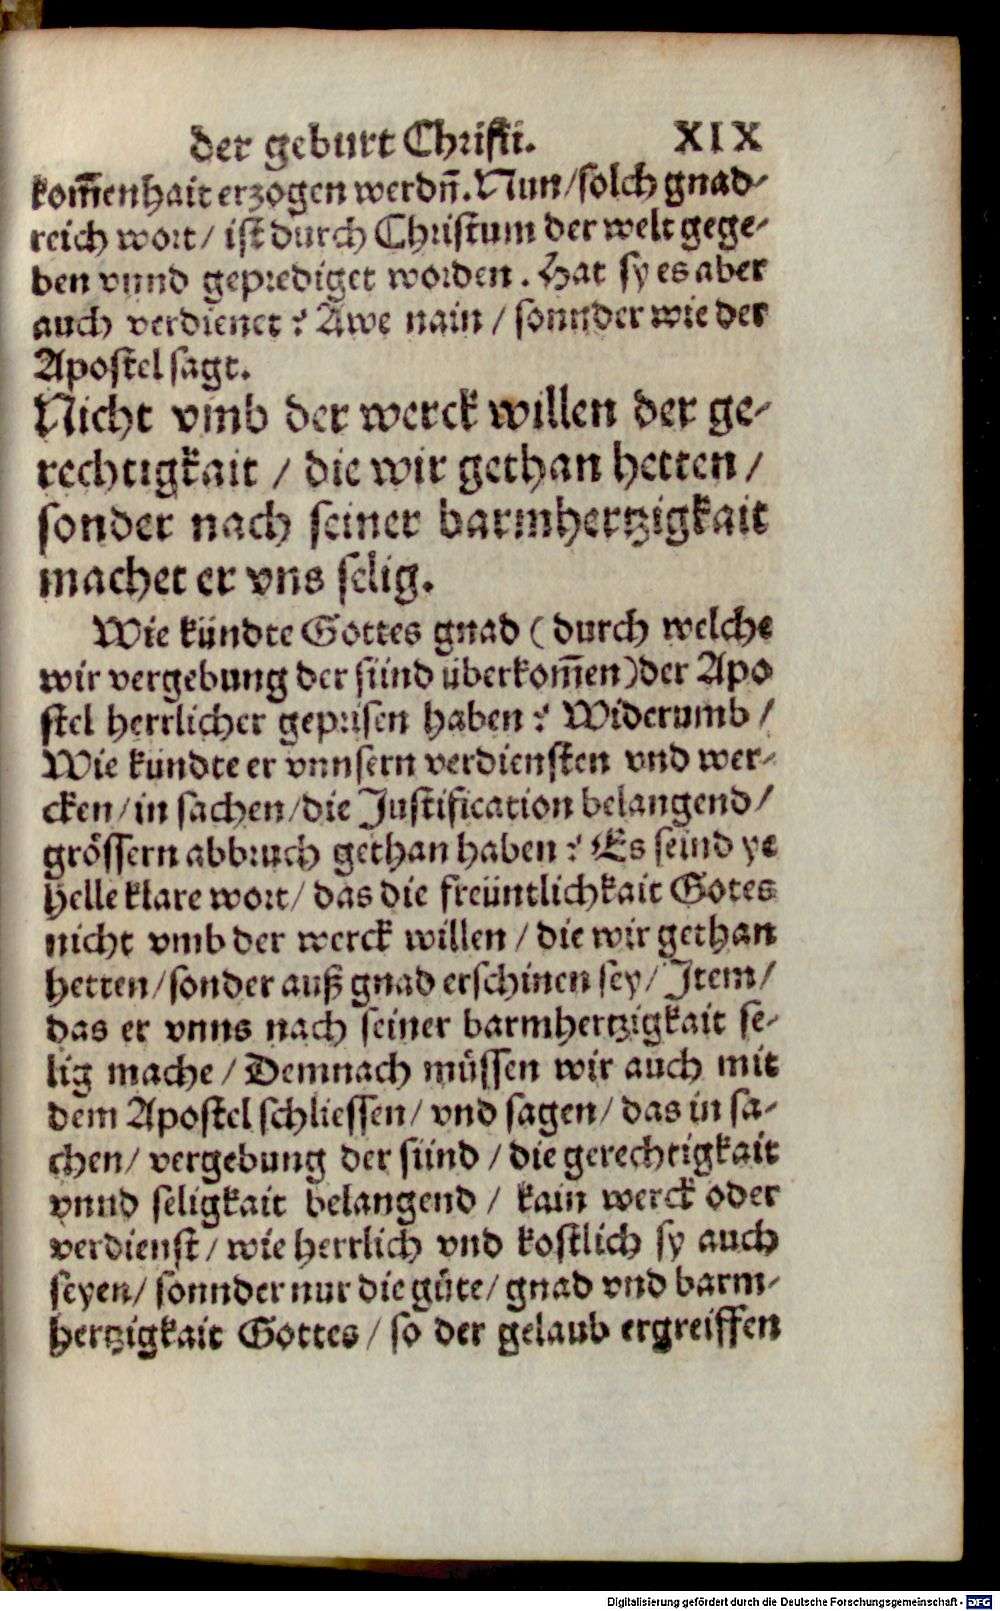 der geburt Christi. XIX
kom̃enhait erzogen werdn̄. Nun / solch gnad-
reich wort / ist durch Christum der welt gege-
ben vnnd geprediget worden. Hat sy es aber
auch verdienet? Awe nain / sonnder wie der
Apostel sagt.
Nicht vmb der werck willen der ge-
rechtigkait / die wir gethan hetten /
sonder nach seiner barmhertzigkait
machet er vns selig.
Wie kündte Gottes gnad (durch welche
wir vergebung der sünd überkom̃en) der Apo
stel herrlicher geprisen haben? Widerumb /
Wie kündte er vnnsern verdiensten vnd wer-
cken / in sachen / die Justification belangend /
grössern abbruch gethan haben? Es seind ye
helle klare wort / das die freüntlichkait Gotes
nicht vmb der werck willen / die wir gethan
hetten / sonder auß gnad erschinen sey / Item /
das er vnns nach seiner barmhertzigkait se-
lig mache / Demnach müssen wir auch mit
dem Apostel schliessen / vnd sagen / das in sa-
chen / vergebung der sünd / die gerechtigkait
vnnd seligkait belangend / kain werck oder
verdienst / wie herrlich vnd kostlich sy auch
seyen / sonnder nur die güte / gnad vnd barm-
hertzigkait Gottes / so der gelaub ergreiffen
Digitalisierung gefördert durch die Deutsche Forschungsgemeinschaft - DFG